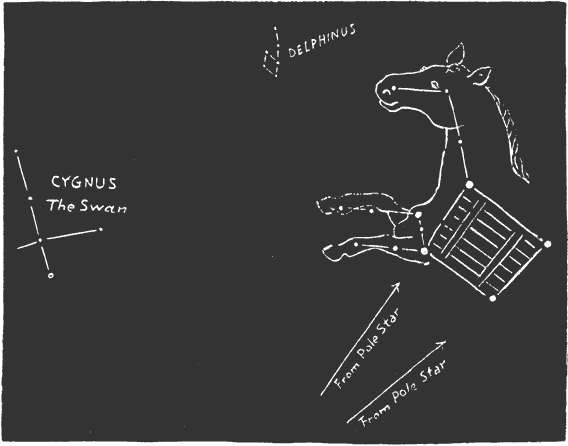 DELPHINUS
CYGNUS
The Swan
From Pole Star
From Pole Star